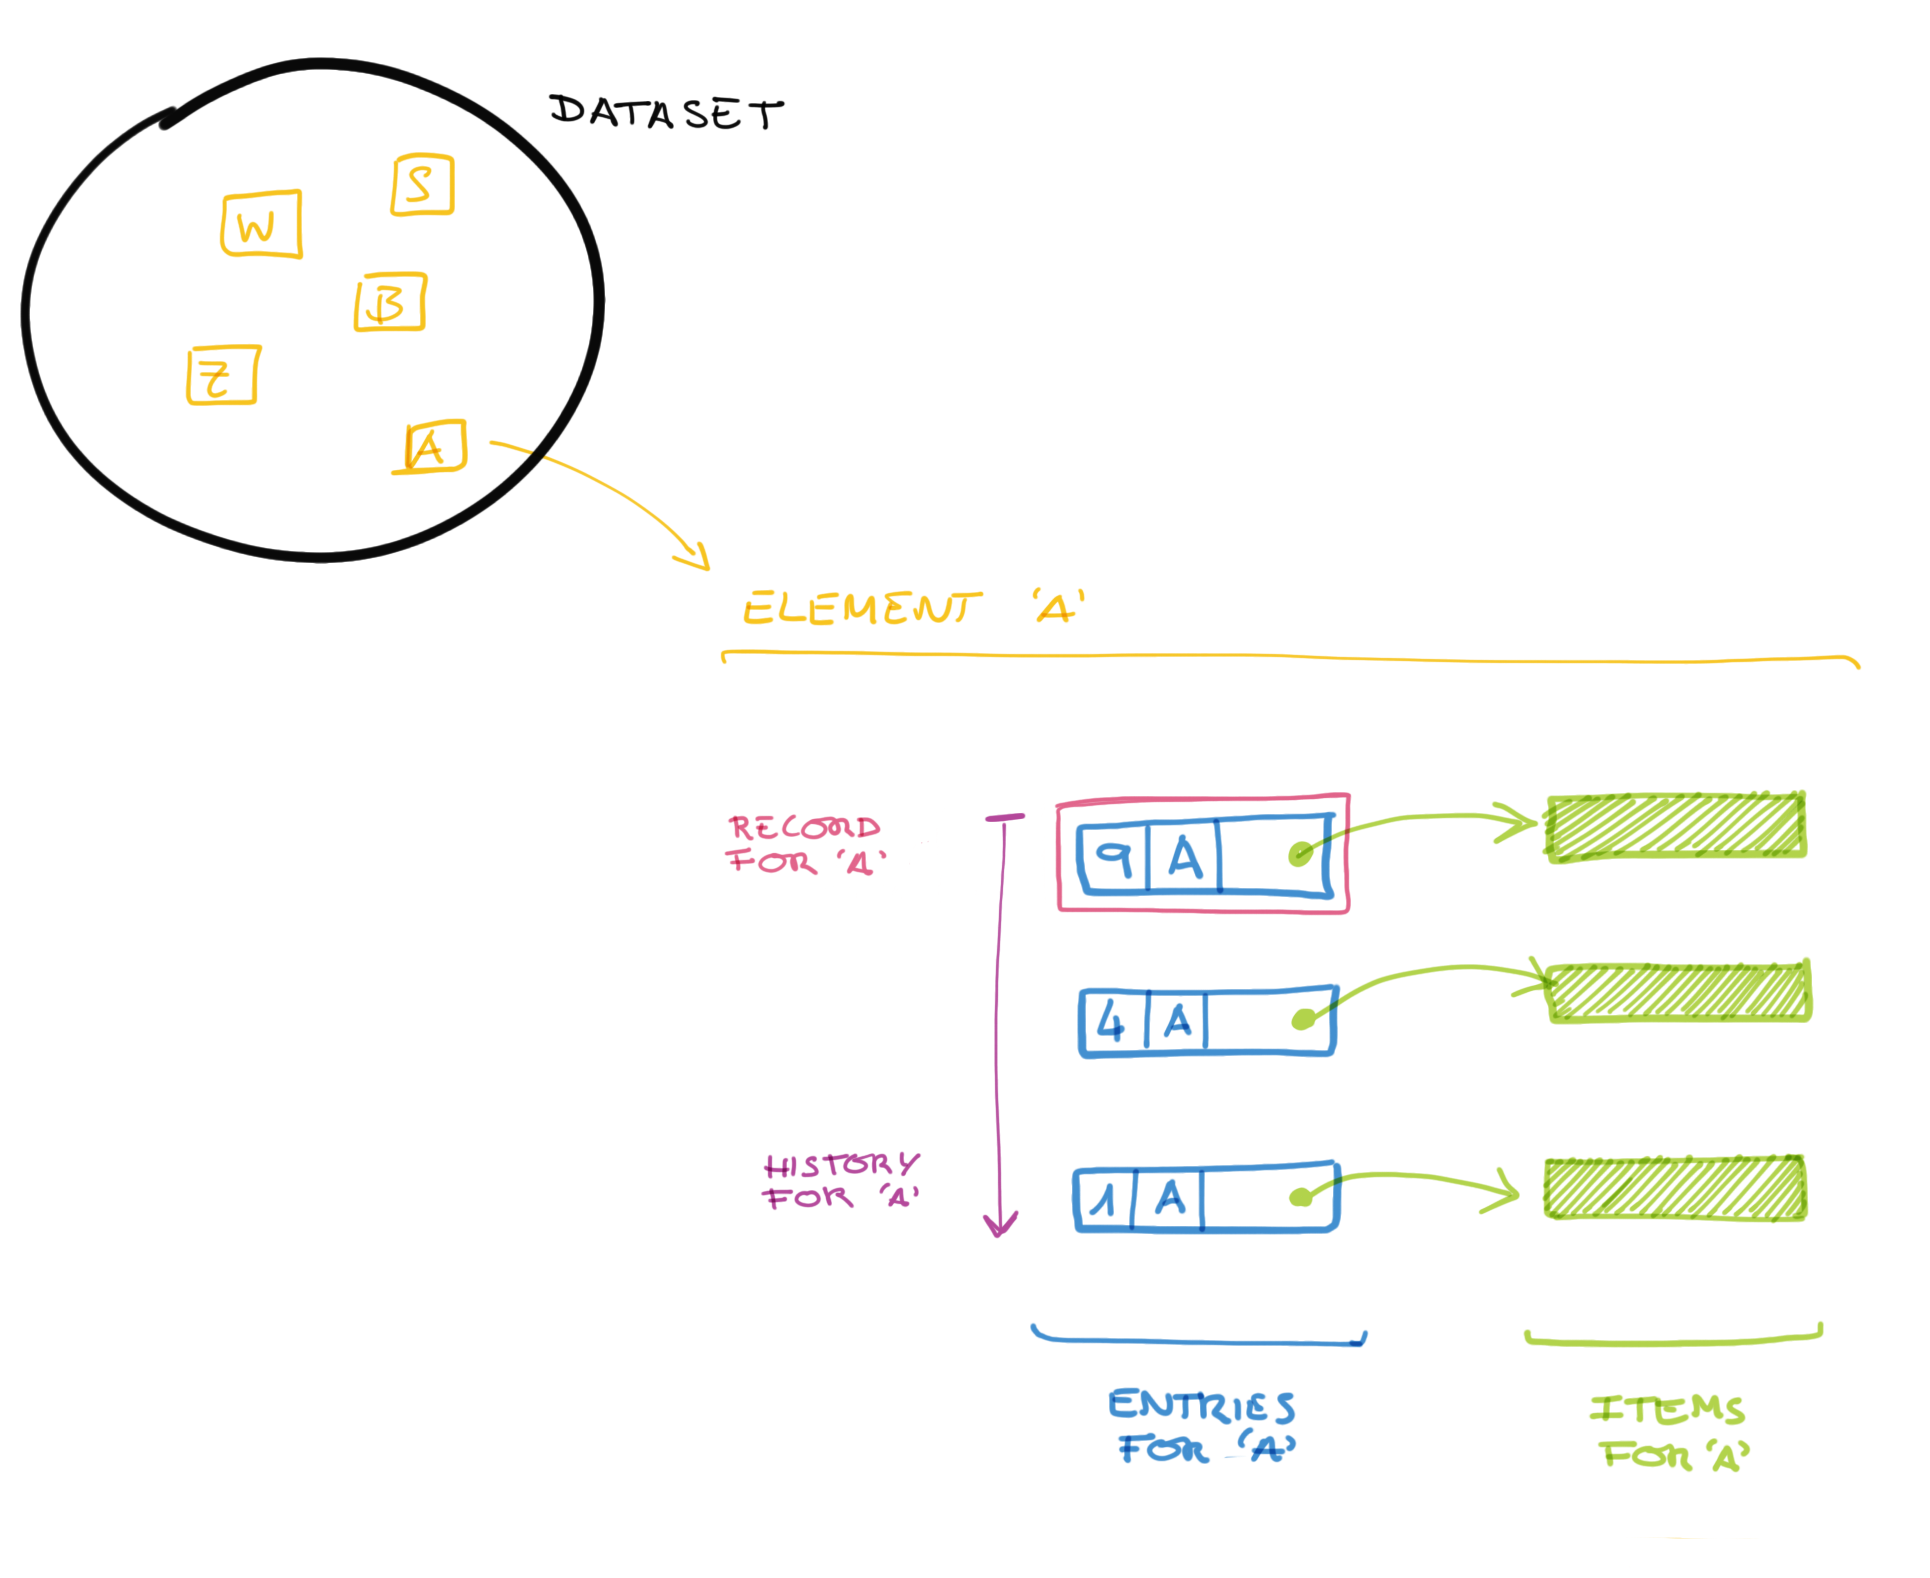 DATASET
S
W
B
Z
A
ELEMENT 'A'
RECORD
FOR 'A'
9 A
4 A
HISTORY
FOR 'A'
1 A
ENTRIES
FOR 'A'
ITEMS
FOR 'A'